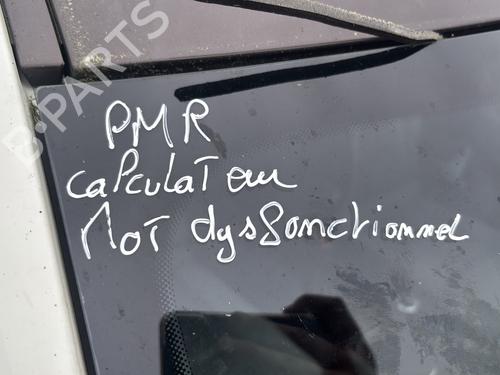 B-PARTS
PMR
calculateur
Mot dysfonctionnel